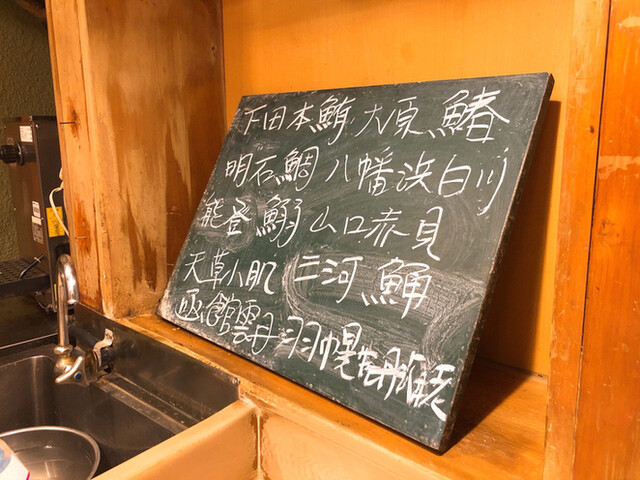 下田本鮪 大原 鰆
明石鯛 八幡浜白川
能登 鰯 山口赤貝
天草小肌 三河 鯒
函館雲丹 羽幌甘海老